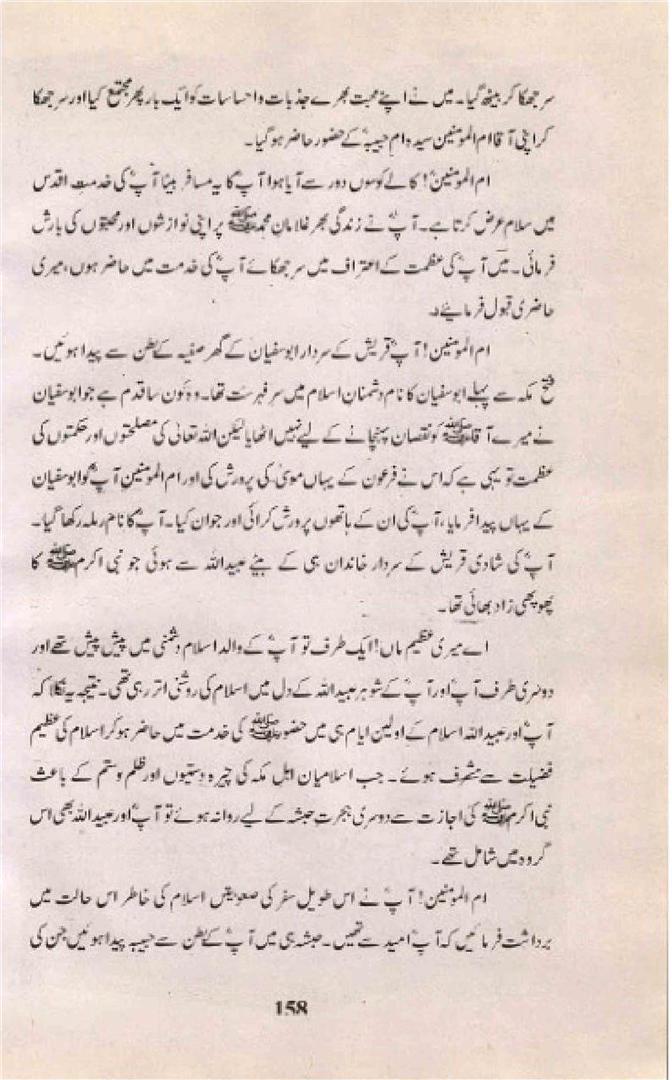 سر جھکا کر بیٹھ گیا۔ میں نے اپنے محبت بھرے جذبات و احساسات کو ایک بار پھر مجتمع کیا اور سر جھکا
کر اپنی آقا ام المومنین سیدہ ام حبیبہؓ کے حضور حاضر ہو گیا۔
ام المومنینؓ! کالے کوسوں دور سے آیا ہوا آپؓ کا یہ مسافر بیٹا آپؓ کی خدمت اقدس
میں سلام عرض کرتا ہے۔ آپؓ نے زندگی بھر غلامان محمدﷺ پر اپنی نوازشوں اور محبتوں کی بارش
فرمائی۔ میں آپؓ کی عظمت کے اعتراف میں سر جھکائے آپؓ کی خدمت میں حاضر ہوں، میری
حاضری قبول فرمایئے۔
ام المومنین! آپؓ قریش کے سردار ابوسفیان کے گھر صفیہ کے بطن سے پیدا ہوئیں۔
فتح مکہ سے پہلے ابوسفیان کا نام دشمنان اسلام میں سرفہرست تھا۔ وہ کون سا قدم ہے جو ابوسفیان
نے میرے آقاﷺ کو نقصان پہنچانے کے لیے نہیں اٹھایا لیکن اللہ تعالیٰ کی مصلحتوں اور حکمتوں کی
عظمت تو یہی ہے کہ اس نے فرعون کے یہاں موسیٰ کی پرورش کی اور ام المومنین آپؓ کو ابوسفیان
کے یہاں پیدا فرمایا، آپ کی ان کے ہاتھوں پرورش کرائی اور جوان کیا۔ آپؓ کا نام رملہ رکھا گیا۔
آپؓ کی شادی قریش کے سردار خاندان ہی کے بیٹے عبیداللہ سے ہوئی جو نبی اکرمﷺ کا
پھوپھی زاد بھائی تھا۔
اے میری عظیم ماں! ایک طرف تو آپؓ کے والد اسلام دشمنی میں پیش پیش تھے اور
دوسری طرف آپؓ اور آپؓ کے شوہر عبیداللہ کے دل میں اسلام کی روشنی اتر رہی تھی۔ نتیجہ یہ نکلا کہ
آپؓ اور عبیداللہ اسلام کے اولین ایام ہی میں حضورﷺ کی خدمت میں حاضر ہو کر اسلام کی عظیم
فضیلت سے مشرف ہوئے۔ جب اسلامیان اہل مکہ کی چیرہ دستیوں اور ظلم و ستم کے باعث
نبی اکرمﷺ کی اجازت سے دوسری ہجرت حبشہ کے لیے روانہ ہوئے تو آپؓ اور عبیداللہ بھی اس
گروہ میں شامل تھے۔
ام المومنین! آپؓ نے اس طویل سفر کی صعوبتیں اسلام کی خاطر اس حالت میں
برداشت فرمائیں کہ آپؓ امید سے تھیں۔ حبشہ ہی میں آپؓ کے بطن سے حبیبہ پیدا ہوئیں جن کی
158